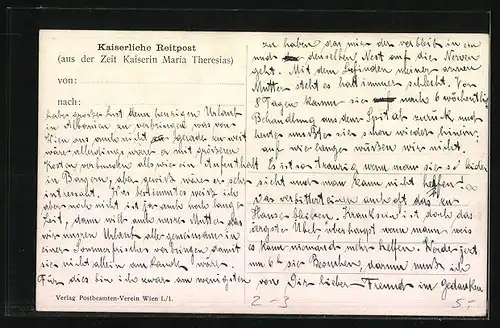 Kaiserliche Reitpost
(aus der Zeit Kaiserin Maria Theresias)
von:
nach:
habe große Lust den heurigen Urlaub
in Albanien zu verbringen was von
Wien aus auch nicht gerade zu weit
wäre allerdings wäre er mit größeren
Kosten verbunden als wie ein Aufenthalt
in Bayern, aber gewiß wäre er sehr
intressant. Was bestimmtes weiß ich
aber noch nicht ist ja auch noch lange
Zeit, dann will auch meine Mutter das
wir unsern Urlaub alle gemeinsam in
einer Sommerfrische verbringen damit
sie nicht allein am Lande wäre.
Für dies bin ich zwar am wenigsten
zu haben das mir der verbleib in ein
und denselben Nest auf die Nerven
geht. Mit dem Befinden meiner armen
Mutter steht es halt immer schlecht. Vor
8 Tagen kamm sie nach 6 wöchentlicher
Behandlung aus dem Spital zurück und
heute mußte sie schon wieder hinein;
auf wie lange wissen wir nicht.
Es ist so traurig wenn man sie leiden
sieht und man kann nicht helfen.
Das verbittert einen auch oft das zu
Hause bleiben. Kranksein ist doch das
ärgste Übel überhaupt wenn man weis
es kann niemand mehr helfen. Werde jetzt
um 6h sie Besuchen, darum muß ich
von Dir lieber Freund im Gedanken
Verlag Postbeamten-Verein Wien I./1.
2-3
5-